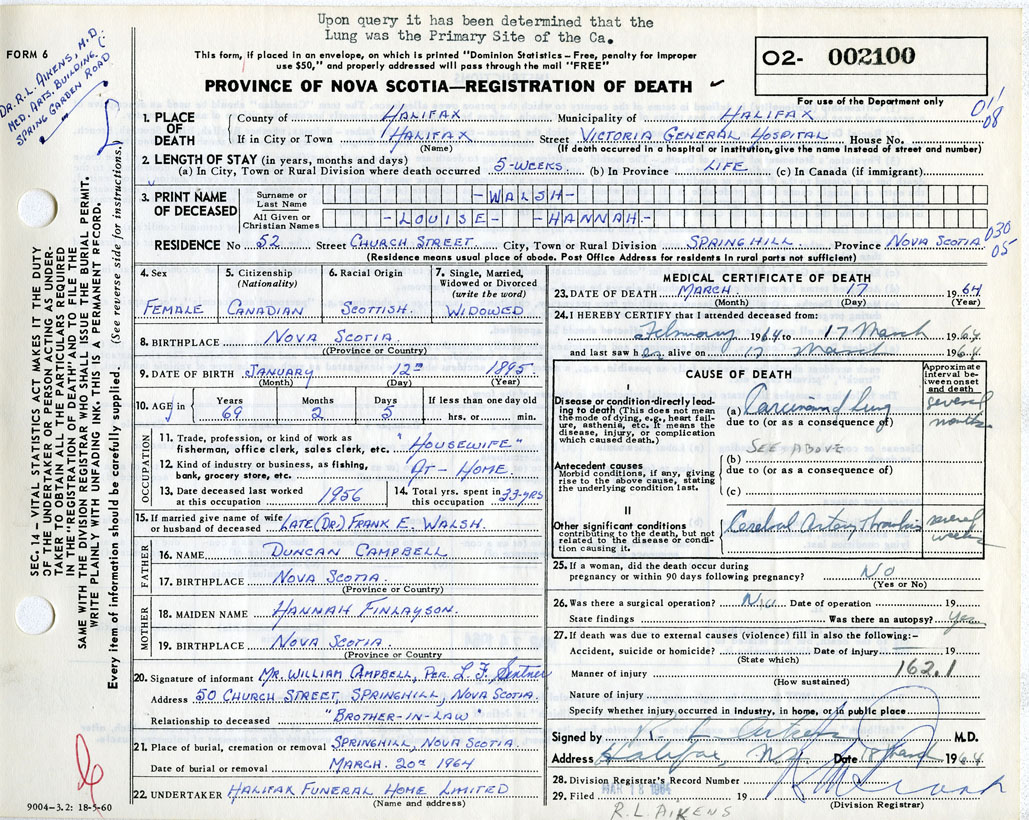 Upon query it has been determined that the
Lung was the Primary Site of the Ca.
FORM 6
DR. R.L. AIKENS, M.D.
MED. ARTS. BUILDING
SPRING GARDEN ROAD
This form, if placed in an envelope, on which is printed "Dominion Statistics – Free, penalty for improper
use $50," and properly addressed will pass through the mail "FREE"
O2- 002100
PROVINCE OF NOVA SCOTIA—REGISTRATION OF DEATH
For use of the Department only
011
08
1. PLACE OF DEATH
County of HALIFAX Municipality of HALIFAX
If in City or Town HALIFAX Street VICTORIA GENERAL HOSPITAL House No.
(Name) (If death occurred in a hospital or institution, give the name instead of street and number)
2. LENGTH OF STAY (in years, months and days)
(a) In City, Town or Rural Division where death occurred 5-WEEKS (b) In Province LIFE (c) In Canada (if immigrant)
3. PRINT NAME OF DECEASED
Surname or Last Name -WALSH-
All Given or Christian Names -LOUISE- -HANNAH-
RESIDENCE No 52 Street CHURCH STREET City, Town or Rural Division SPRINGHILL Province NOVA SCOTIA
030
05
(Residence means usual place of abode. Post Office Address for residents in rural parts not sufficient)
SEC. 14 – VITAL STATISTICS ACT MAKES IT THE DUTY
OF THE UNDERTAKER OR PERSON ACTING AS UNDER-
TAKER TO OBTAIN ALL THE PARTICULARS REQUIRED
IN THE "REGISTRATION OF DEATH" AND TO FILE THE
SAME WITH THE DIVISION REGISTRAR WHO SHALL ISSUE THE BURIAL PERMIT.
WRITE PLAINLY WITH UNFADING INK. THIS IS A PERMANENT RECORD.
Every item of information should be carefully supplied. (See reverse side for instructions.)
4. Sex
FEMALE
5. Citizenship
(Nationality)
CANADIAN
6. Racial Origin
SCOTTISH
7. Single, Married,
Widowed or Divorced
(write the word)
WIDOWED
8. BIRTHPLACE NOVA SCOTIA
(Province or Country)
9. DATE OF BIRTH JANUARY 12TH 1895
(Month) (Day) (Year)
10. AGE in
Years Months Days If less than one day old
69 2 5 hrs. or min.
OCCUPATION
11. Trade, profession, or kind of work as
fisherman, office clerk, sales clerk, etc. "HOUSEWIFE"
12. Kind of industry or business, as fishing,
bank, grocery store, etc. AT-HOME.
13. Date deceased last worked
at this occupation 1956
14. Total yrs. spent in
this occupation 33-YRS
15. If married give name of wife
or husband of deceased LATE (DR.) FRANK E. WALSH.
FATHER
16. NAME DUNCAN CAMPBELL
17. BIRTHPLACE NOVA SCOTIA.
(Province or Country)
MOTHER
18. MAIDEN NAME HANNAH FINLAYSON.
19. BIRTHPLACE NOVA SCOTIA.
(Province or Country)
20. Signature of informant MR. WILLIAM CAMPBELL, PER L.F.
Address 50 CHURCH STREET, SPRINGHILL, NOVA SCOTIA.
Relationship to deceased "BROTHER-IN-LAW"
21. Place of burial, cremation or removal SPRINGHILL, NOVA SCOTIA.
Date of burial or removal MARCH. 20TH 1964
22. UNDERTAKER HALIFAX FUNERAL HOME LIMITED
(Name and address)
9004–3.2: 18-5-60
MEDICAL CERTIFICATE OF DEATH
23. DATE OF DEATH MARCH. 17 1964
(Month) (Day) (Year)
24. I HEREBY CERTIFY that I attended deceased from:
February 1964 to 17 March 1964
and last saw her alive on 17 March 1964
CAUSE OF DEATH
Approximate
interval be-
tween onset
and death
I
Disease or condition directly lead-
ing to death (This does not mean
the mode of dying, e.g., heart fail-
ure, asthenia, etc. It means the
disease, injury, or complication
which caused death.)
(a) Carcinoma of Lung several months
due to (or as a consequence of)
SEE ABOVE
Antecedent causes
Morbid conditions, if any, giving
rise to the above cause, stating
the underlying condition last.
(b)
due to (or as a consequence of)
(c)
II
Other significant conditions
contributing to the death, but not
related to the disease or condi-
tion causing it.
Cerebral Artery Thrombosis several weeks
25. If a woman, did the death occur during
pregnancy or within 90 days following pregnancy? NO
(Yes or No)
26. Was there a surgical operation? No Date of operation 19
State findings Was there an autopsy? Yes
27. If death was due to external causes (violence) fill in also the following:–
Accident, suicide or homicide? Date of injury 19
(State which)
Manner of injury 162.1
(How sustained)
Nature of injury
Specify whether injury occurred in industry, in home, or in public place
Signed by M.D.
Address Halifax N.S. Date 18 March 1964
28. Division Registrar's Record Number
29. Filed MAR 18 1964 19
(Division Registrar)
R.L. AIKENS